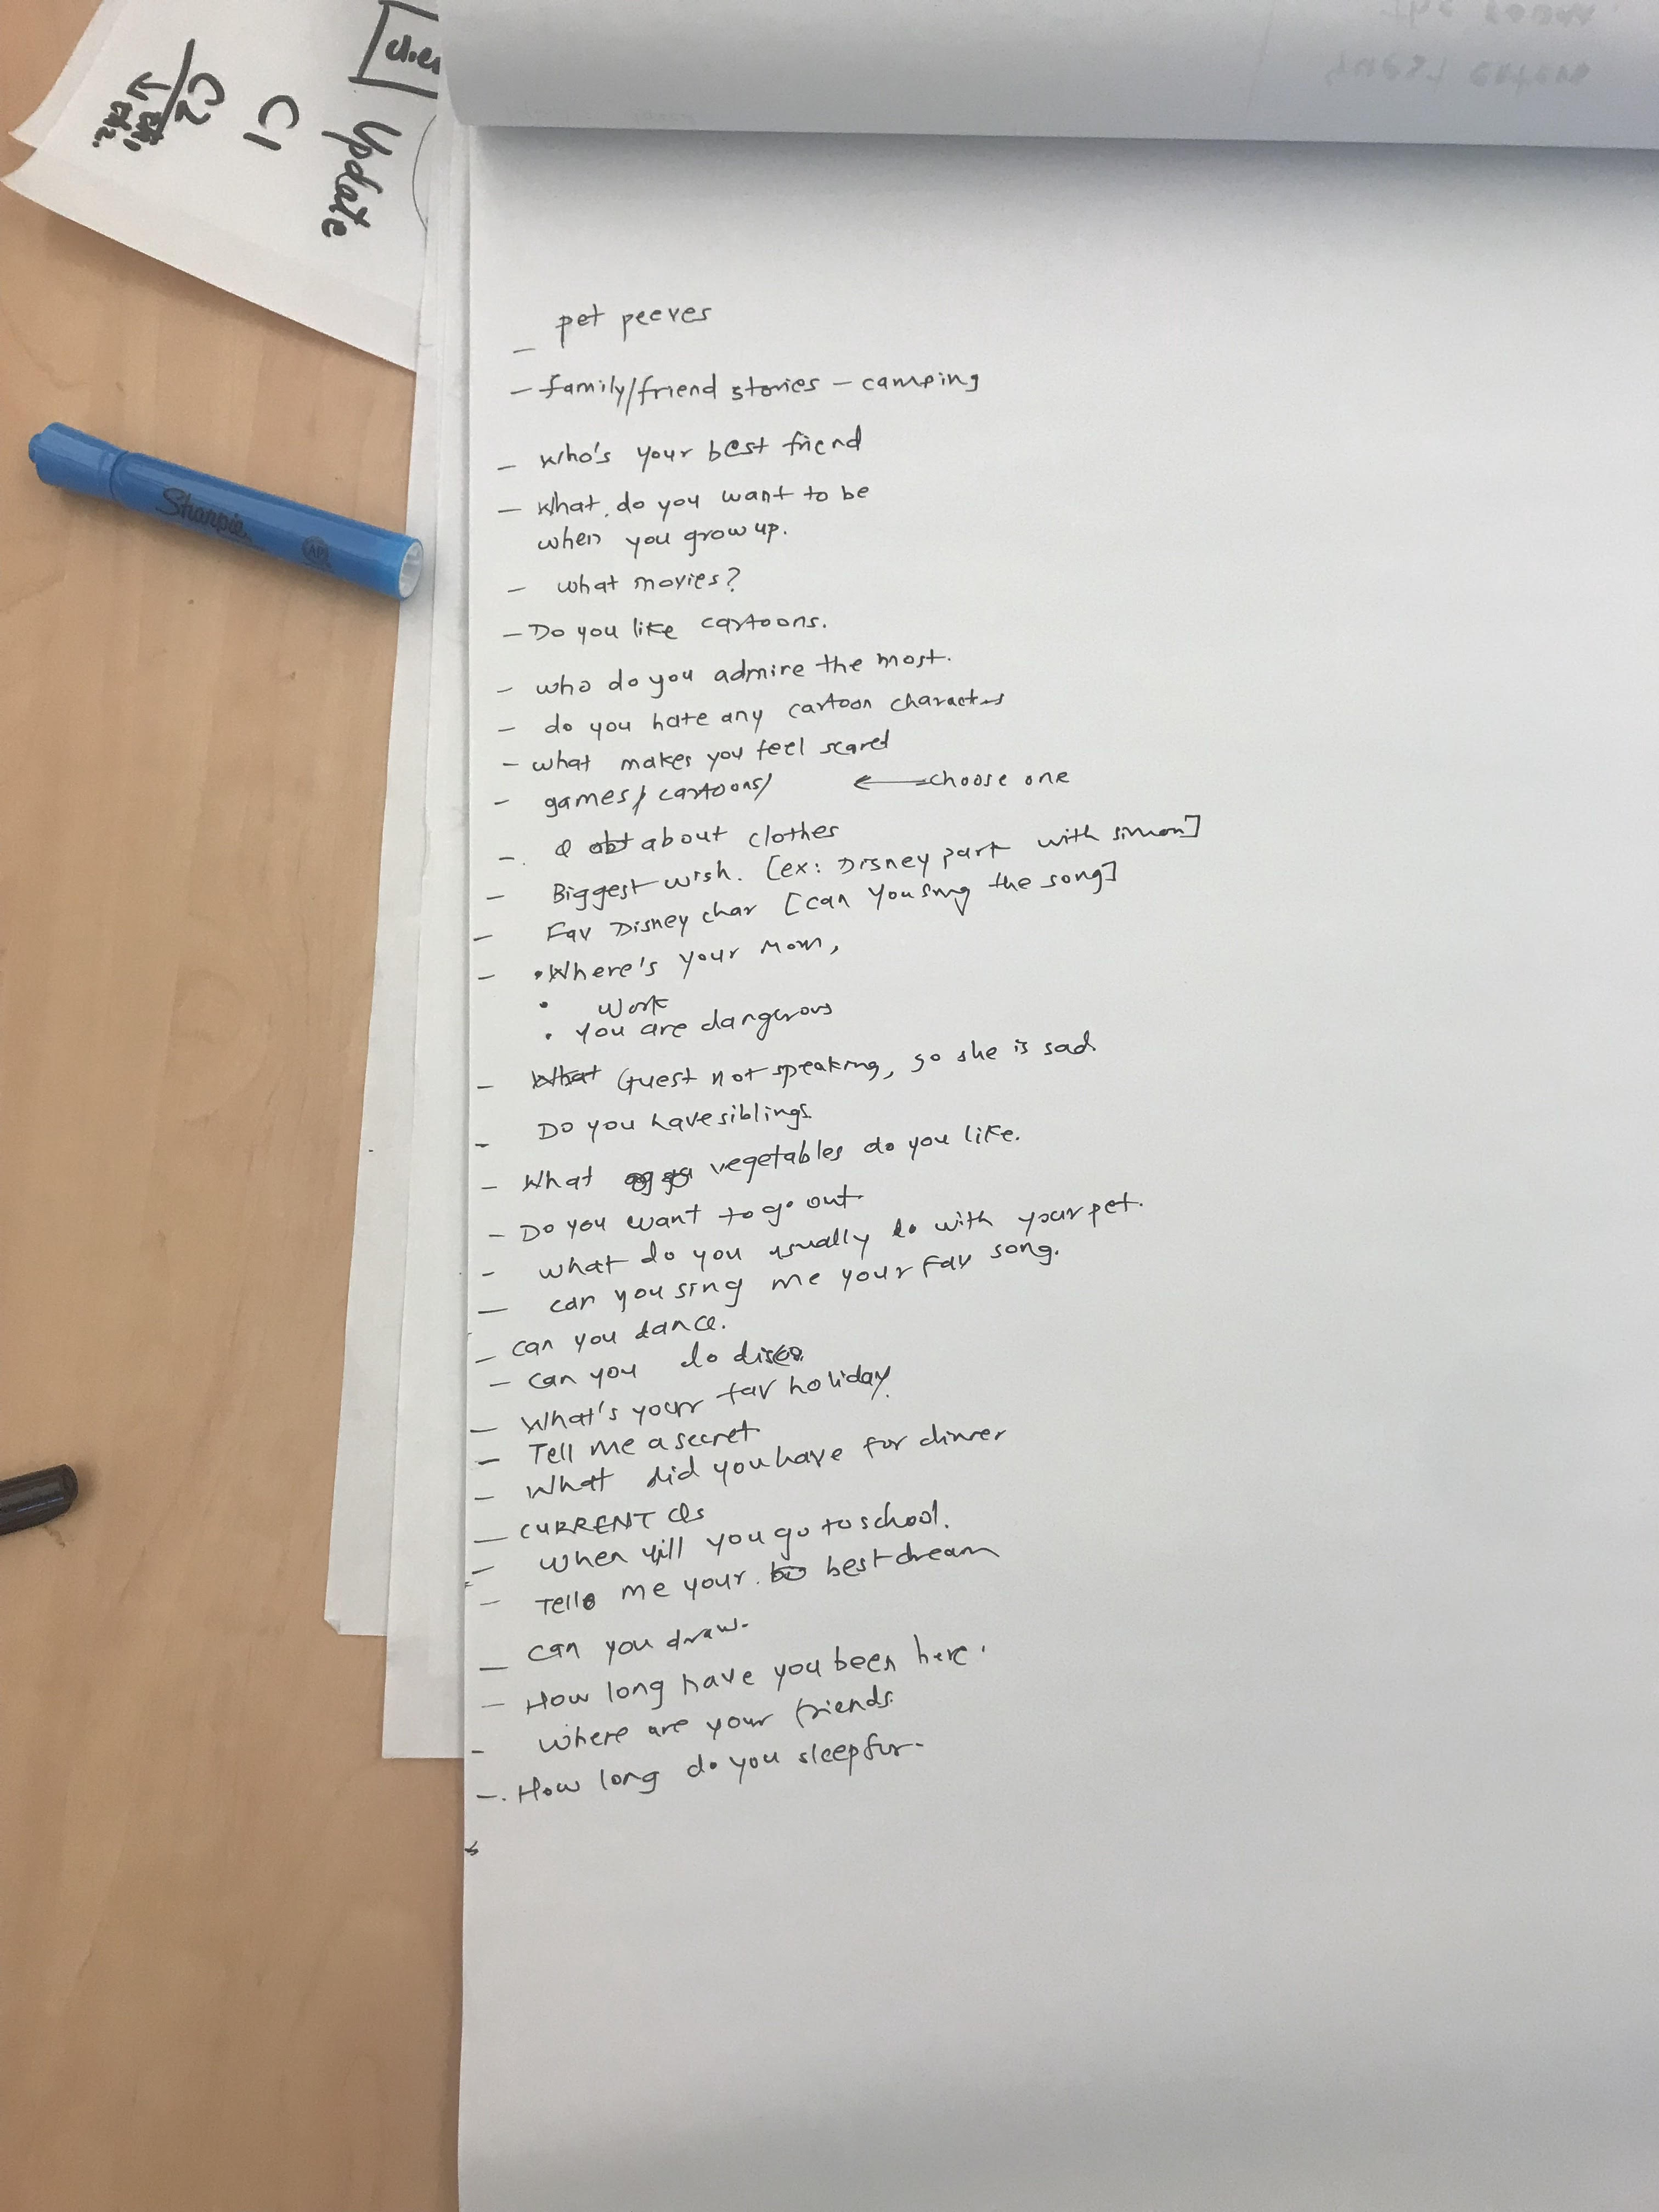 clien
Update
C1
C2
Sharpie
AP
- pet peeves
- family/friend stories - camping
- Who's your best friend
- What do you want to be
when you grow up.
- what movies?
- Do you like cartoons.
- who do you admire the most.
- do you hate any cartoon characters
- what makes you feel scared
- games/ cartoons/ ← choose one
- Q about clothes
- Biggest wish. [ex: Disney park with simon]
- Fav Disney char [can you sing the song]
- • Where's your mom,
• work
• you are dangerous
- What Guest not speaking, so she is sad
- Do you have siblings
- What vegetables do you like.
- Do you want to go out
- what do you usually do with your pet.
- can you sing me your fav song.
- can you dance.
- can you do disco
- What's your fav holiday
- Tell me a secret
- What did you have for dinner
- CURRENT Qs
- when will you go to school.
- Tell me your best dream
- can you draw.
- How long have you been here.
- where are your friends
- How long do you sleep for.